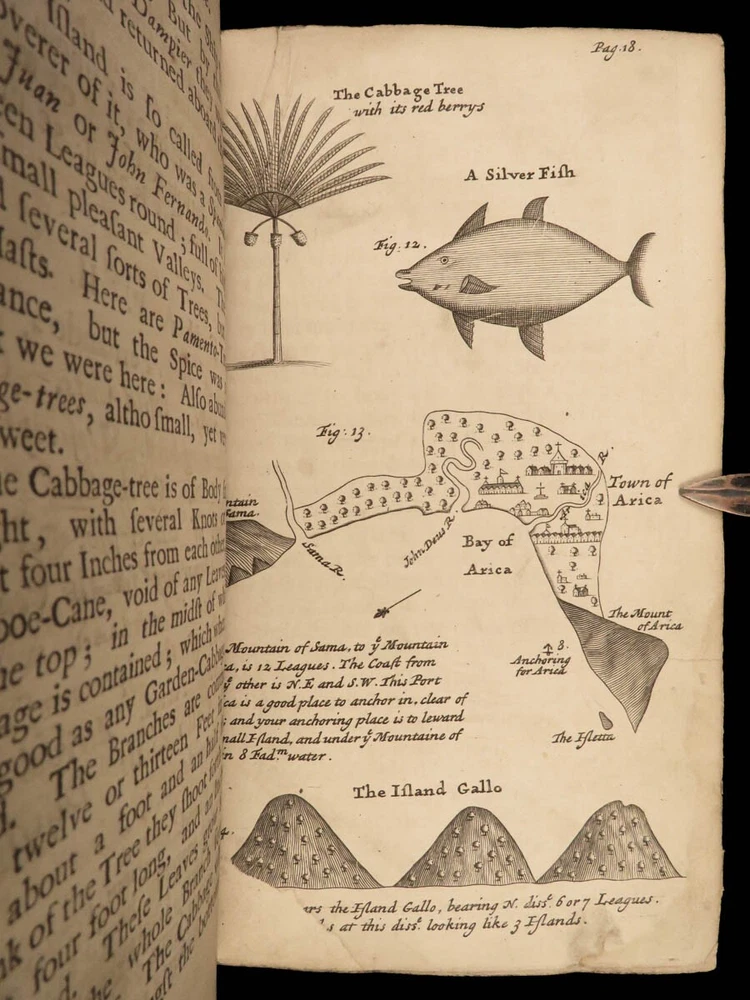 the
But
Dampier they
d returned aboard
Iſland is ſo called from
overer of it, who was a Spa
Juan or John Fernando.
een Leagues round; full of
ſmall pleaſant Valleys.
d ſeveral ſorts of Trees,
Maſts. Here are Pamento-T
ance, but the Spice was
t we were here: Alſo abu
ge-trees, altho ſmall, yet ve
ſweet.
he Cabbage-tree is of Body
ght, with ſeveral Knots o
t four Inches from each othe
boe-Cane, void of any Leav
he top; in the midſt of w
age is contained; which wh
good as any Garden-Cabb
d. The Branches are com
twelve or thirteen Feet
about a foot and an half
nk of the Tree they ſhoot for
four foot long, and an
d. Theſe Leaves grow
the whole Branch
The Cabbage
gſt the bo
Pag. 18.
The Cabbage Tree
with its red berrys
A Silver Fiſh
Fig: 12.
Fig: 13.
Town of
Arica
R.
ntain
Sama.
Sama R.
John Deus R.
Bay of
Arica
The Mount
of Arica
8.
Anchoring
for Arica
The Iſletta
Mountain of Sama, to ẏ Mountain
ca, is 12 Leagues. The Coaſt from
ẏ other is N.E and S.W. This Port
ca is a good place to anchor in, clear of
; and your anchoring place is to leward
mall Iſland, and under ẏ Mountaine of
in 8 Fad.m water.
The Iſland Gallo
4.
ars the Iſland Gallo, bearing N. diſt. 6 or 7 Leagues.
s at this diſt. looking like 3 Iſlands.